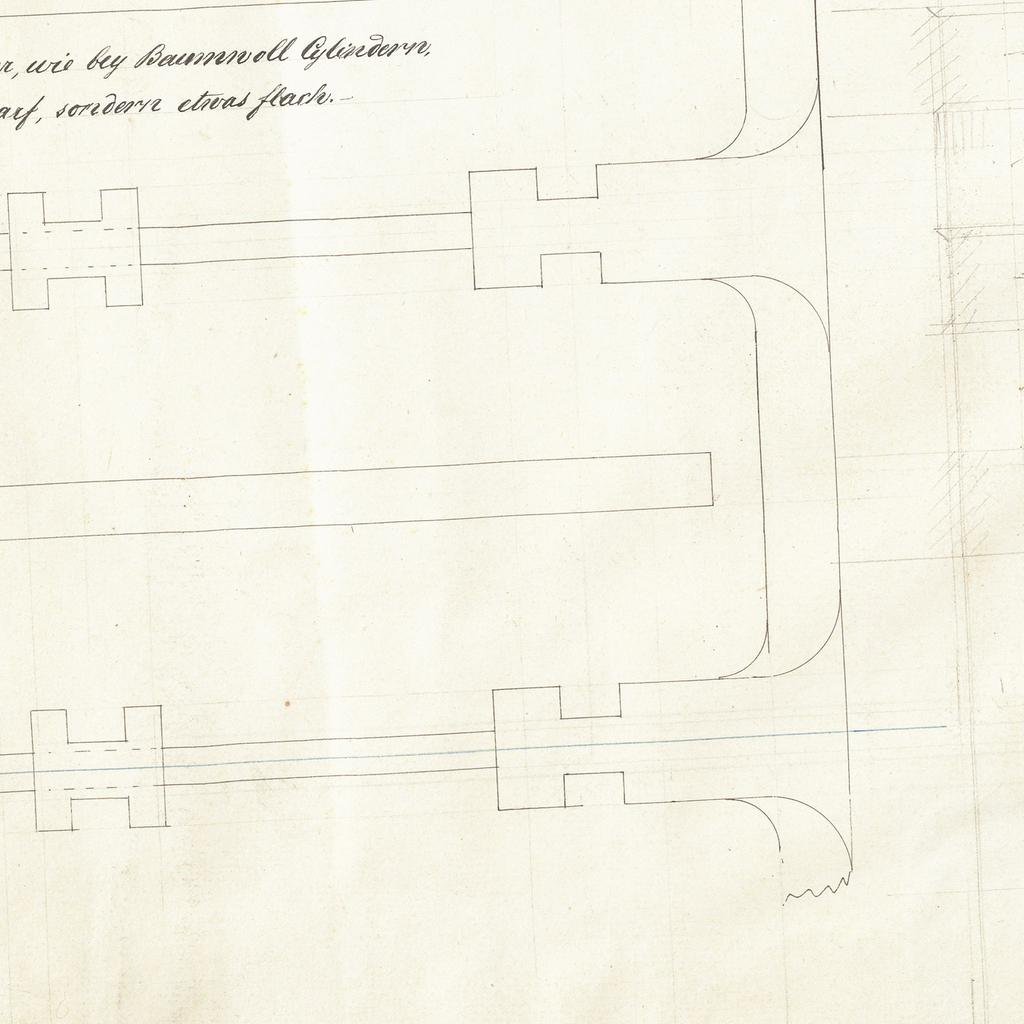 wie bey Baumwoll Cylindern,
sondern etwas flach.–